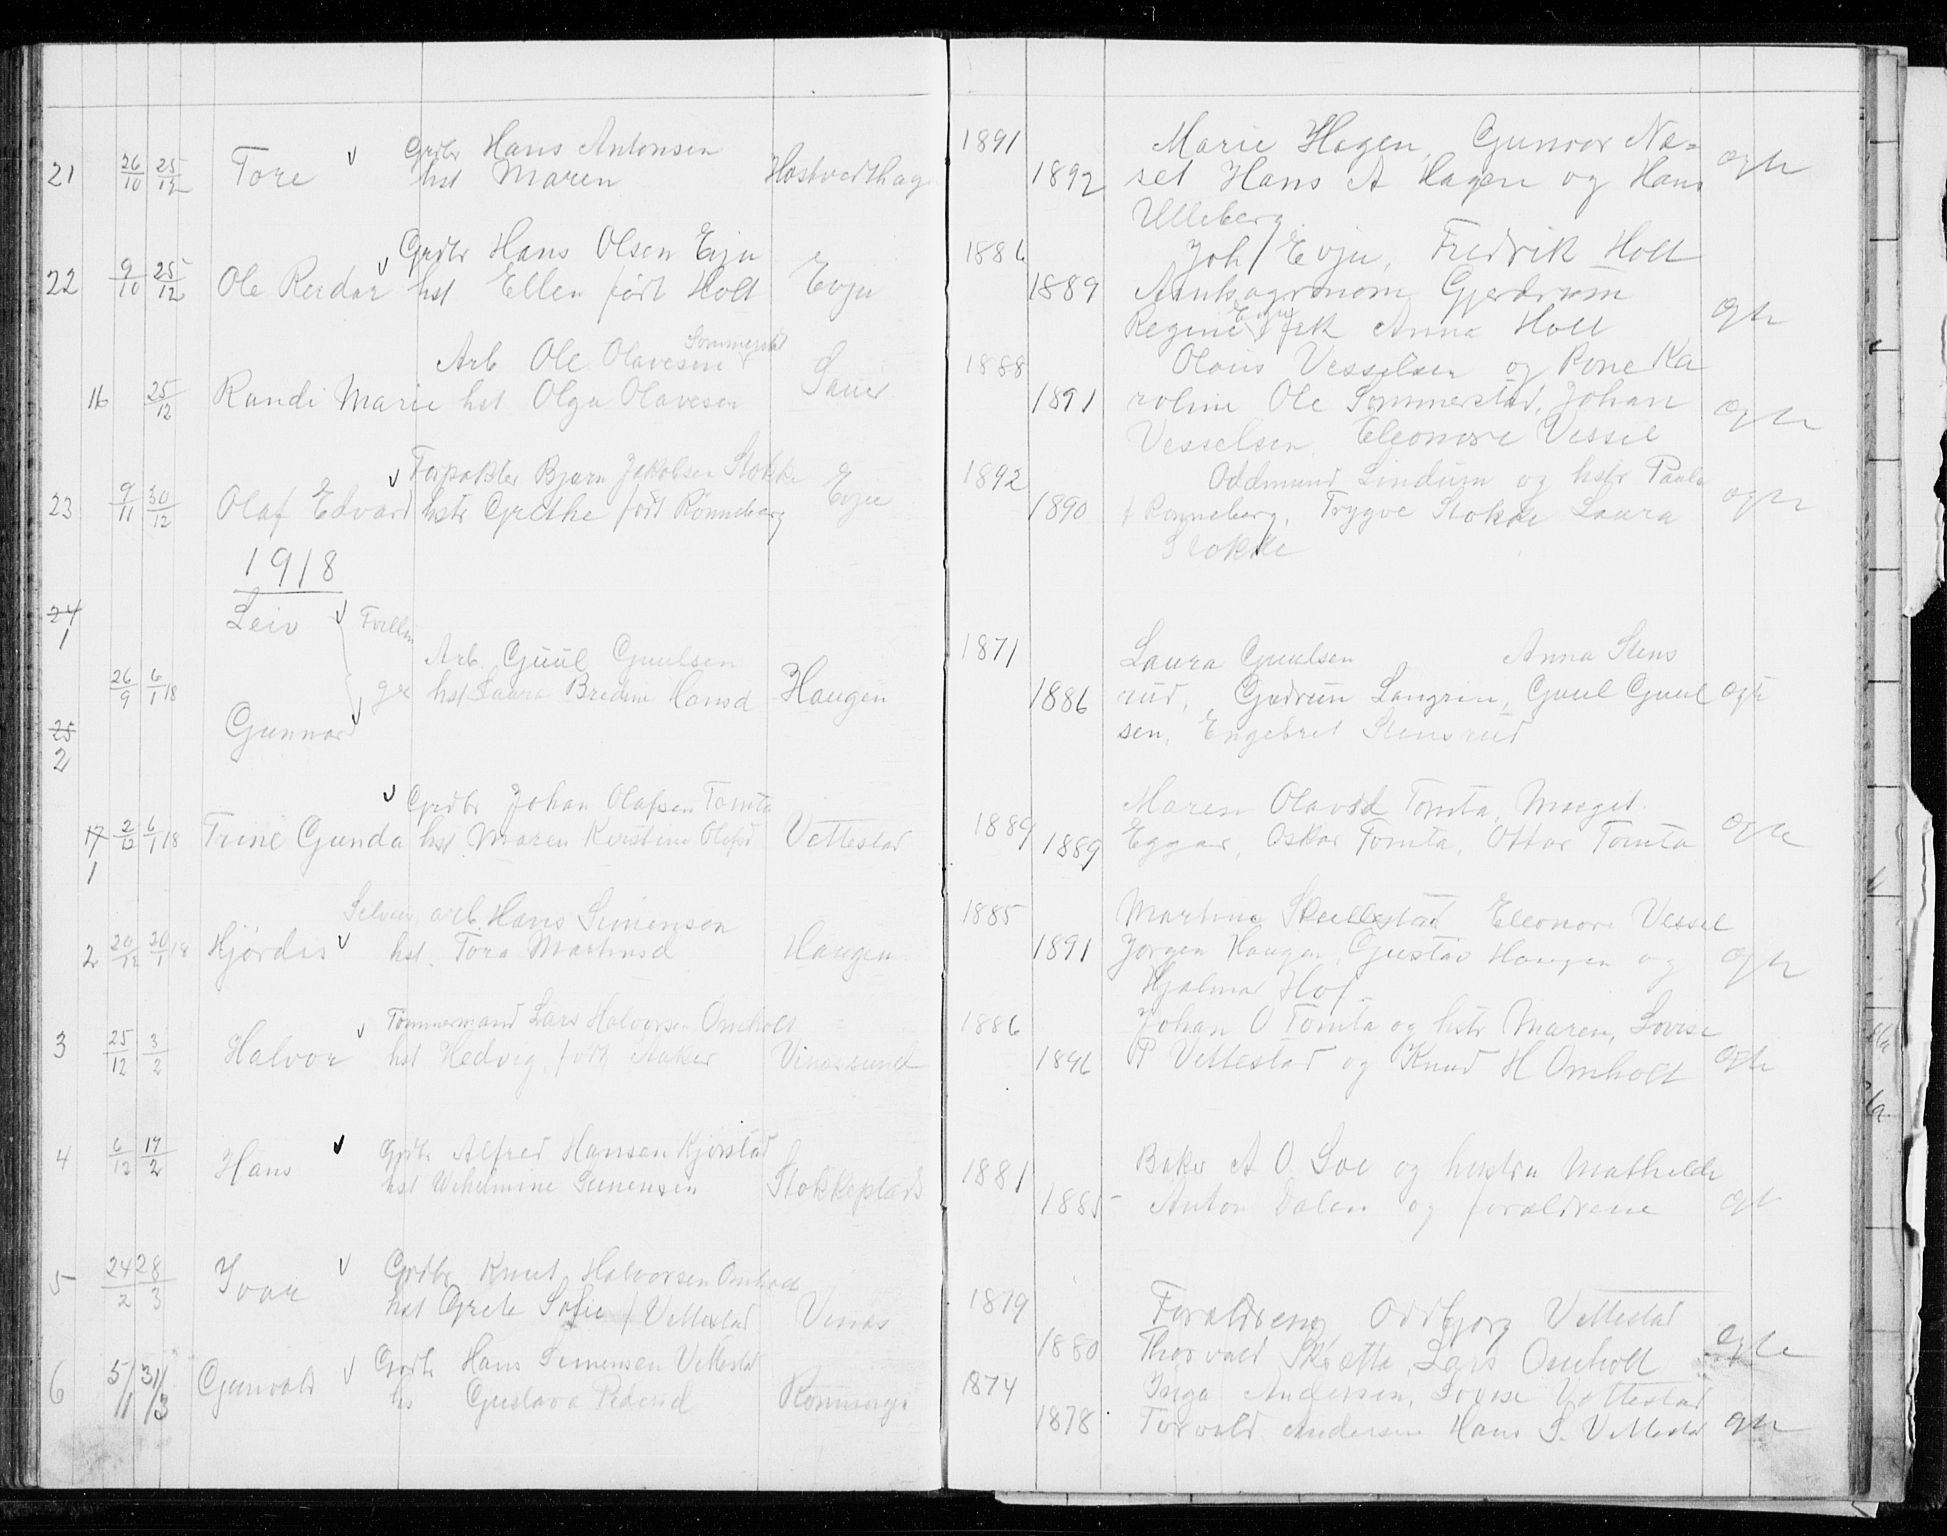 1891
Marie Hagen, Gunvor Næ=
21 26/10 25/12 Tore Grdbr Hans Antonsen
hst Maren
1892 set Hans A Hagen og Hans ægte
Ulleberg
22 9/10 25/12 Ole Reidar Grdbr Hans Olsen Evju
hst Ellen født Holt Evju
1886 Joh Evju, Fredrik Holt
1889 Amtsagronom Gjerdrum
Regine Evju frk Anna Holt ægte
16 25/12 Randi Marie Arb Ole Olavesen Sommerstad
hst Olga Olavesen
1888 Olaus Vesselsen og Kone Ka
1891 roline Ole Sommerstad, Johan ægte
Vesselsen, Eleonore Vessel
23 9/11 30/12 Olaf Edvard Forpakter Bjarn Jakobsen Stokke
hstr Grethe født Rønneberg Evju
1892 Oddmund Lindum og hstr Paula
1890 f Rønneberg, Trygve Stokke Laura ægte
Stokke
1918
24 1 Leiv
26/9 6/1 18 Arb. Guul Guulsen
hst Laura Bredine Hansd Haugen
25 2 Gunnar
1871 Laura Guulsen Anna Stens
1886 rud, Gudrun Langrin, Guul Guul ægte
sen, Engebret Stensrud
17 1 2/12 6/1 18 Trine Gunda Grdbr Johan Olafsen Tomta
hst Maren Kirstine Olafsd Vettestad
1889 Maren Olavsd Tomta, Margit
1889 Eggar, Oskar Tomta, Ottar Tomta ægte
2 20/12 20/1 18 Hjørdis arb. Hans Simensen
hst. Tora Martinsd Haugen
1885 Martine Skullestad Eleonore Vessel
1891 Jørgen Haugen, Gustav Haugen og ægte
Hjalmar Hof
3 25/12 3/2 Halvor Tømmermand Lars Halvorsen Omholt
hst Hedvig født Aaker Vinæssund
1886 Johan O Tomta og hstr Maren, Lovise
1896 P Vettestad og Knud H Omholt ægte
4 6/12 17/2 Hans Grdbr Alfred Hansen Kjørstad
hst Wilhelmine Simensen Stokkeplads
1881 Baker A O Soe og hustru Mathilde
1885 Anton Dalen og forældrene ægt
5 24/2 28/3 Ivar Grdbr Knut Halvorsen Omholt
hst Grete Sofie f Vettestad Vinæs
1879 Forældrene, Oddbjørg Vettestad
1880 Thorvald Skætta, Lars Omholt ægte
6 5/11 31/3 Gunvald Grdbr Hans Simensen Vettestad
hs Gustava Pedersd
1874 Inga Andersen, Lovise Vettestad
1878 Torvald Andersen Hans S. Vettestad ægte